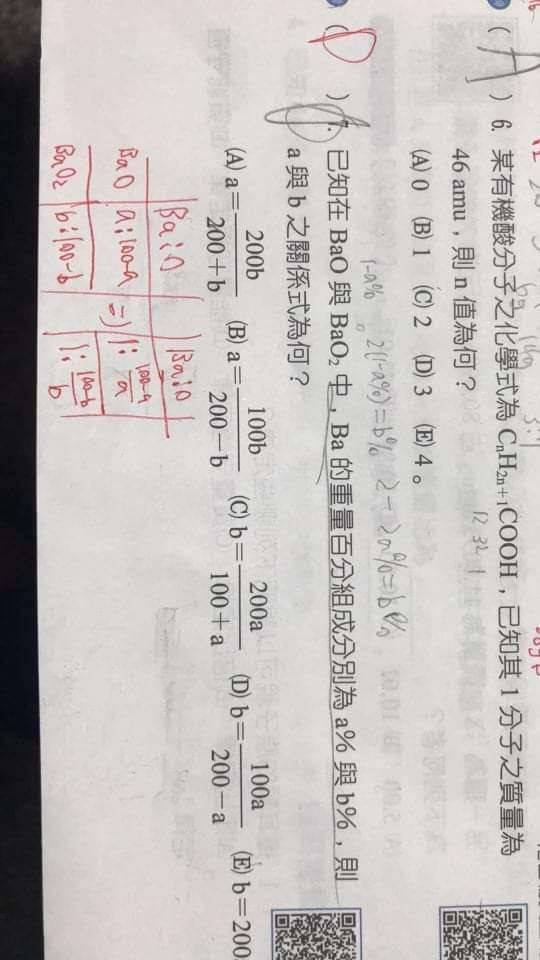 ( A ) 6. 某有機酸分子之化學式為 CₙH₂ₙ₊₁COOH，已知其 1 分子之質量為
46 amu，則 n 值為何？
(A) 0 (B) 1 (C) 2 (D) 3 (E) 4。
1-a% 2(1-a%)=b% 2-2a%=b%
( D ) 7. 已知在 BaO 與 BaO₂ 中，Ba 的重量百分組成分別為 a% 與 b%，則
a 與 b 之關係式為何？
(A) a=200b/200+b (B) a=100b/200-b (C) b=200a/100+a (D) b=100a/200-a (E) b=200
Ba:O Ba:O
BaO a:100-a ⇒ 1:100-a/a
BaO₂ b:100-b 1:100-b/b